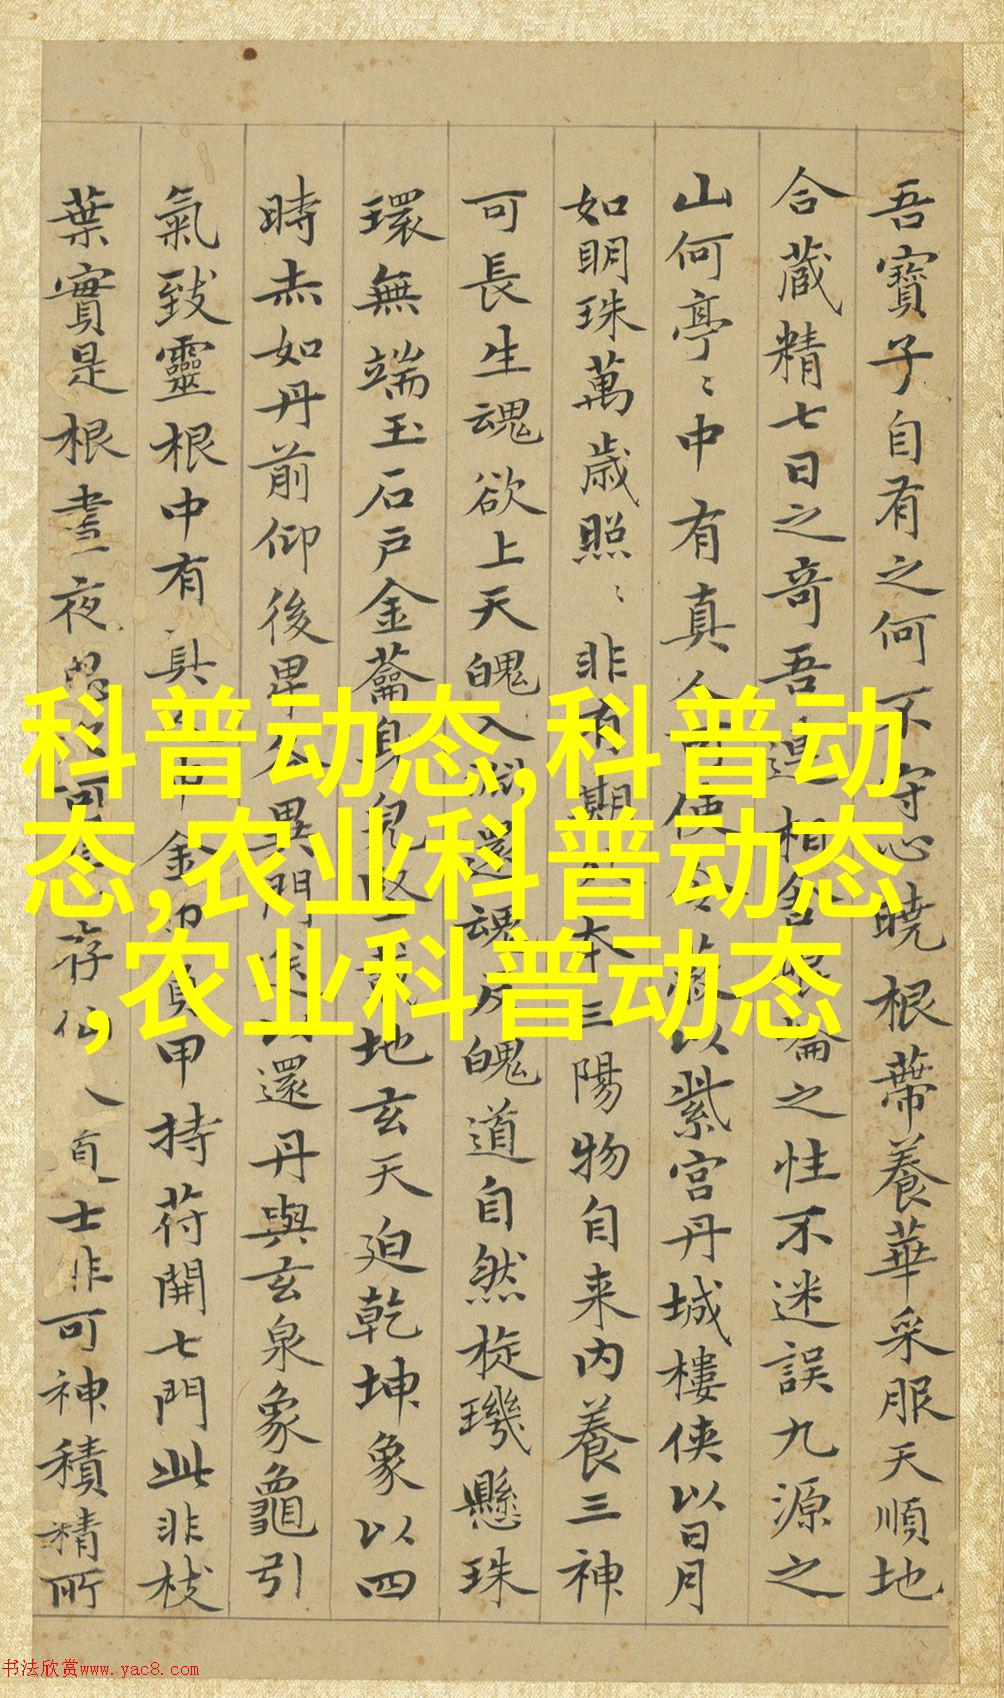 吾寶子自有之何不守心曉根蔕養華采服天順地
合藏精七日之奇吾連相舍崐崘之性不迷誤九源之
山何亭〻中有真人可使令蔽以紫宮丹城樓俠以日月
如明珠萬歲照〻非有期外本三陽物自来内養三神
可長生魂欲上天魄入淵還魂反魄道自然旋璣懸珠
環無端玉石戶金蘥身皃堅載地玄天迫乾坤象以四
時赤如丹前仰後卑公異門送以還丹與玄泉象龜引
氣致靈根中有真中金巾負甲持苻開七門此非枝
葉實是根晝夜思之可存仙人道士非可神積精所
科普动态,科普动
态,农业科普动态
,农业科普动态
书法欣赏www.yac8.com